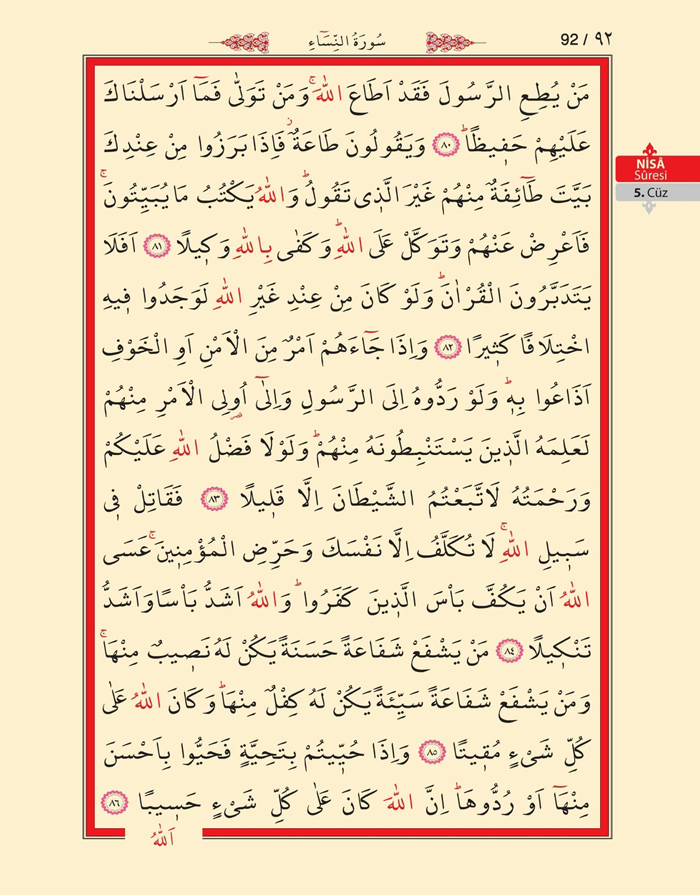 سُورَةُ النِّسَاءِ
92 / ٩٢
مَنْ يُطِعِ الرَّسُولَ فَقَدْ اَطَاعَ اللّٰهَۚ وَمَنْ تَوَلّٰى فَمَٓا اَرْسَلْنَاكَ
عَلَيْهِمْ حَفٖيظًاۜ ﴿٨٠﴾ وَيَقُولُونَ طَاعَةٌۘ فَاِذَا بَرَزُوا مِنْ عِنْدِكَ
بَيَّتَ طَٓائِفَةٌ مِنْهُمْ غَيْرَ الَّذٖى تَقُولُۜ وَاللّٰهُ يَكْتُبُ مَا يُبَيِّتُونَۚ
فَاَعْرِضْ عَنْهُمْ وَتَوَكَّلْ عَلَى اللّٰهِۜ وَكَفٰى بِاللّٰهِ وَكٖيلًا ﴿٨١﴾ اَفَلَا
يَتَدَبَّرُونَ الْقُرْاٰنَۜ وَلَوْ كَانَ مِنْ عِنْدِ غَيْرِ اللّٰهِ لَوَجَدُوا فٖيهِ
اخْتِلَافًا كَثٖيرًا ﴿٨٢﴾ وَاِذَا جَٓاءَهُمْ اَمْرٌ مِنَ الْاَمْنِ اَوِ الْخَوْفِ
اَذَاعُوا بِهٖۜ وَلَوْ رَدُّوهُ اِلَى الرَّسُولِ وَاِلٰٓى اُو۬لِى الْاَمْرِ مِنْهُمْ
لَعَلِمَهُ الَّذٖينَ يَسْتَنْبِطُونَهُ مِنْهُمْۜ وَلَوْلَا فَضْلُ اللّٰهِ عَلَيْكُمْ
وَرَحْمَتُهُ لَاتَّبَعْتُمُ الشَّيْطَانَ اِلَّا قَلٖيلًا ﴿٨٣﴾ فَقَاتِلْ فٖى
سَبٖيلِ اللّٰهِۚ لَا تُكَلَّفُ اِلَّا نَفْسَكَ وَحَرِّضِ الْمُؤْمِنٖينَۚ عَسَى
اللّٰهُ اَنْ يَكُفَّ بَأْسَ الَّذٖينَ كَفَرُواۜ وَاللّٰهُ اَشَدُّ بَأْسًا وَاَشَدُّ
تَنْكٖيلًا ﴿٨٤﴾ مَنْ يَشْفَعْ شَفَاعَةً حَسَنَةً يَكُنْ لَهُ نَصٖيبٌ مِنْهَاۚ
وَمَنْ يَشْفَعْ شَفَاعَةً سَيِّئَةً يَكُنْ لَهُ كِفْلٌ مِنْهَاۜ وَكَانَ اللّٰهُ عَلٰى
كُلِّ شَىْءٍ مُقٖيتًا ﴿٨٥﴾ وَاِذَا حُيّٖيتُمْ بِتَحِيَّةٍ فَحَيُّوا بِاَحْسَنَ
مِنْهَٓا اَوْ رُدُّوهَاۜ اِنَّ اللّٰهَ كَانَ عَلٰى كُلِّ شَىْءٍ حَسٖيبًا ﴿٨٦﴾
اَللّٰهُ
NİSÂ
Sûresi
5. Cüz